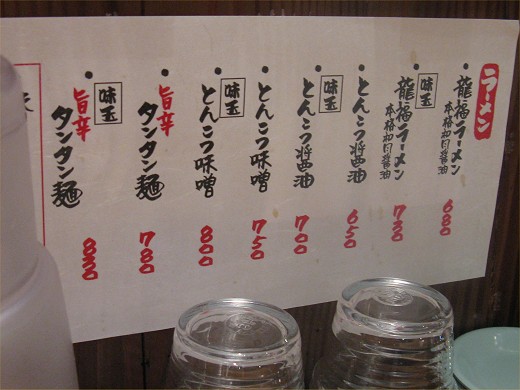 ラーメン
・龍福ラーメン
本格和風醤油
680
・味玉
龍福ラーメン
本格和風醤油
730
・とんこつ醤油
650
・味玉
とんこつ醤油
700
・とんこつ味噌
750
・味玉
とんこつ味噌
800
・旨辛
タンタン麺
780
・味玉
旨辛
タンタン麺
830